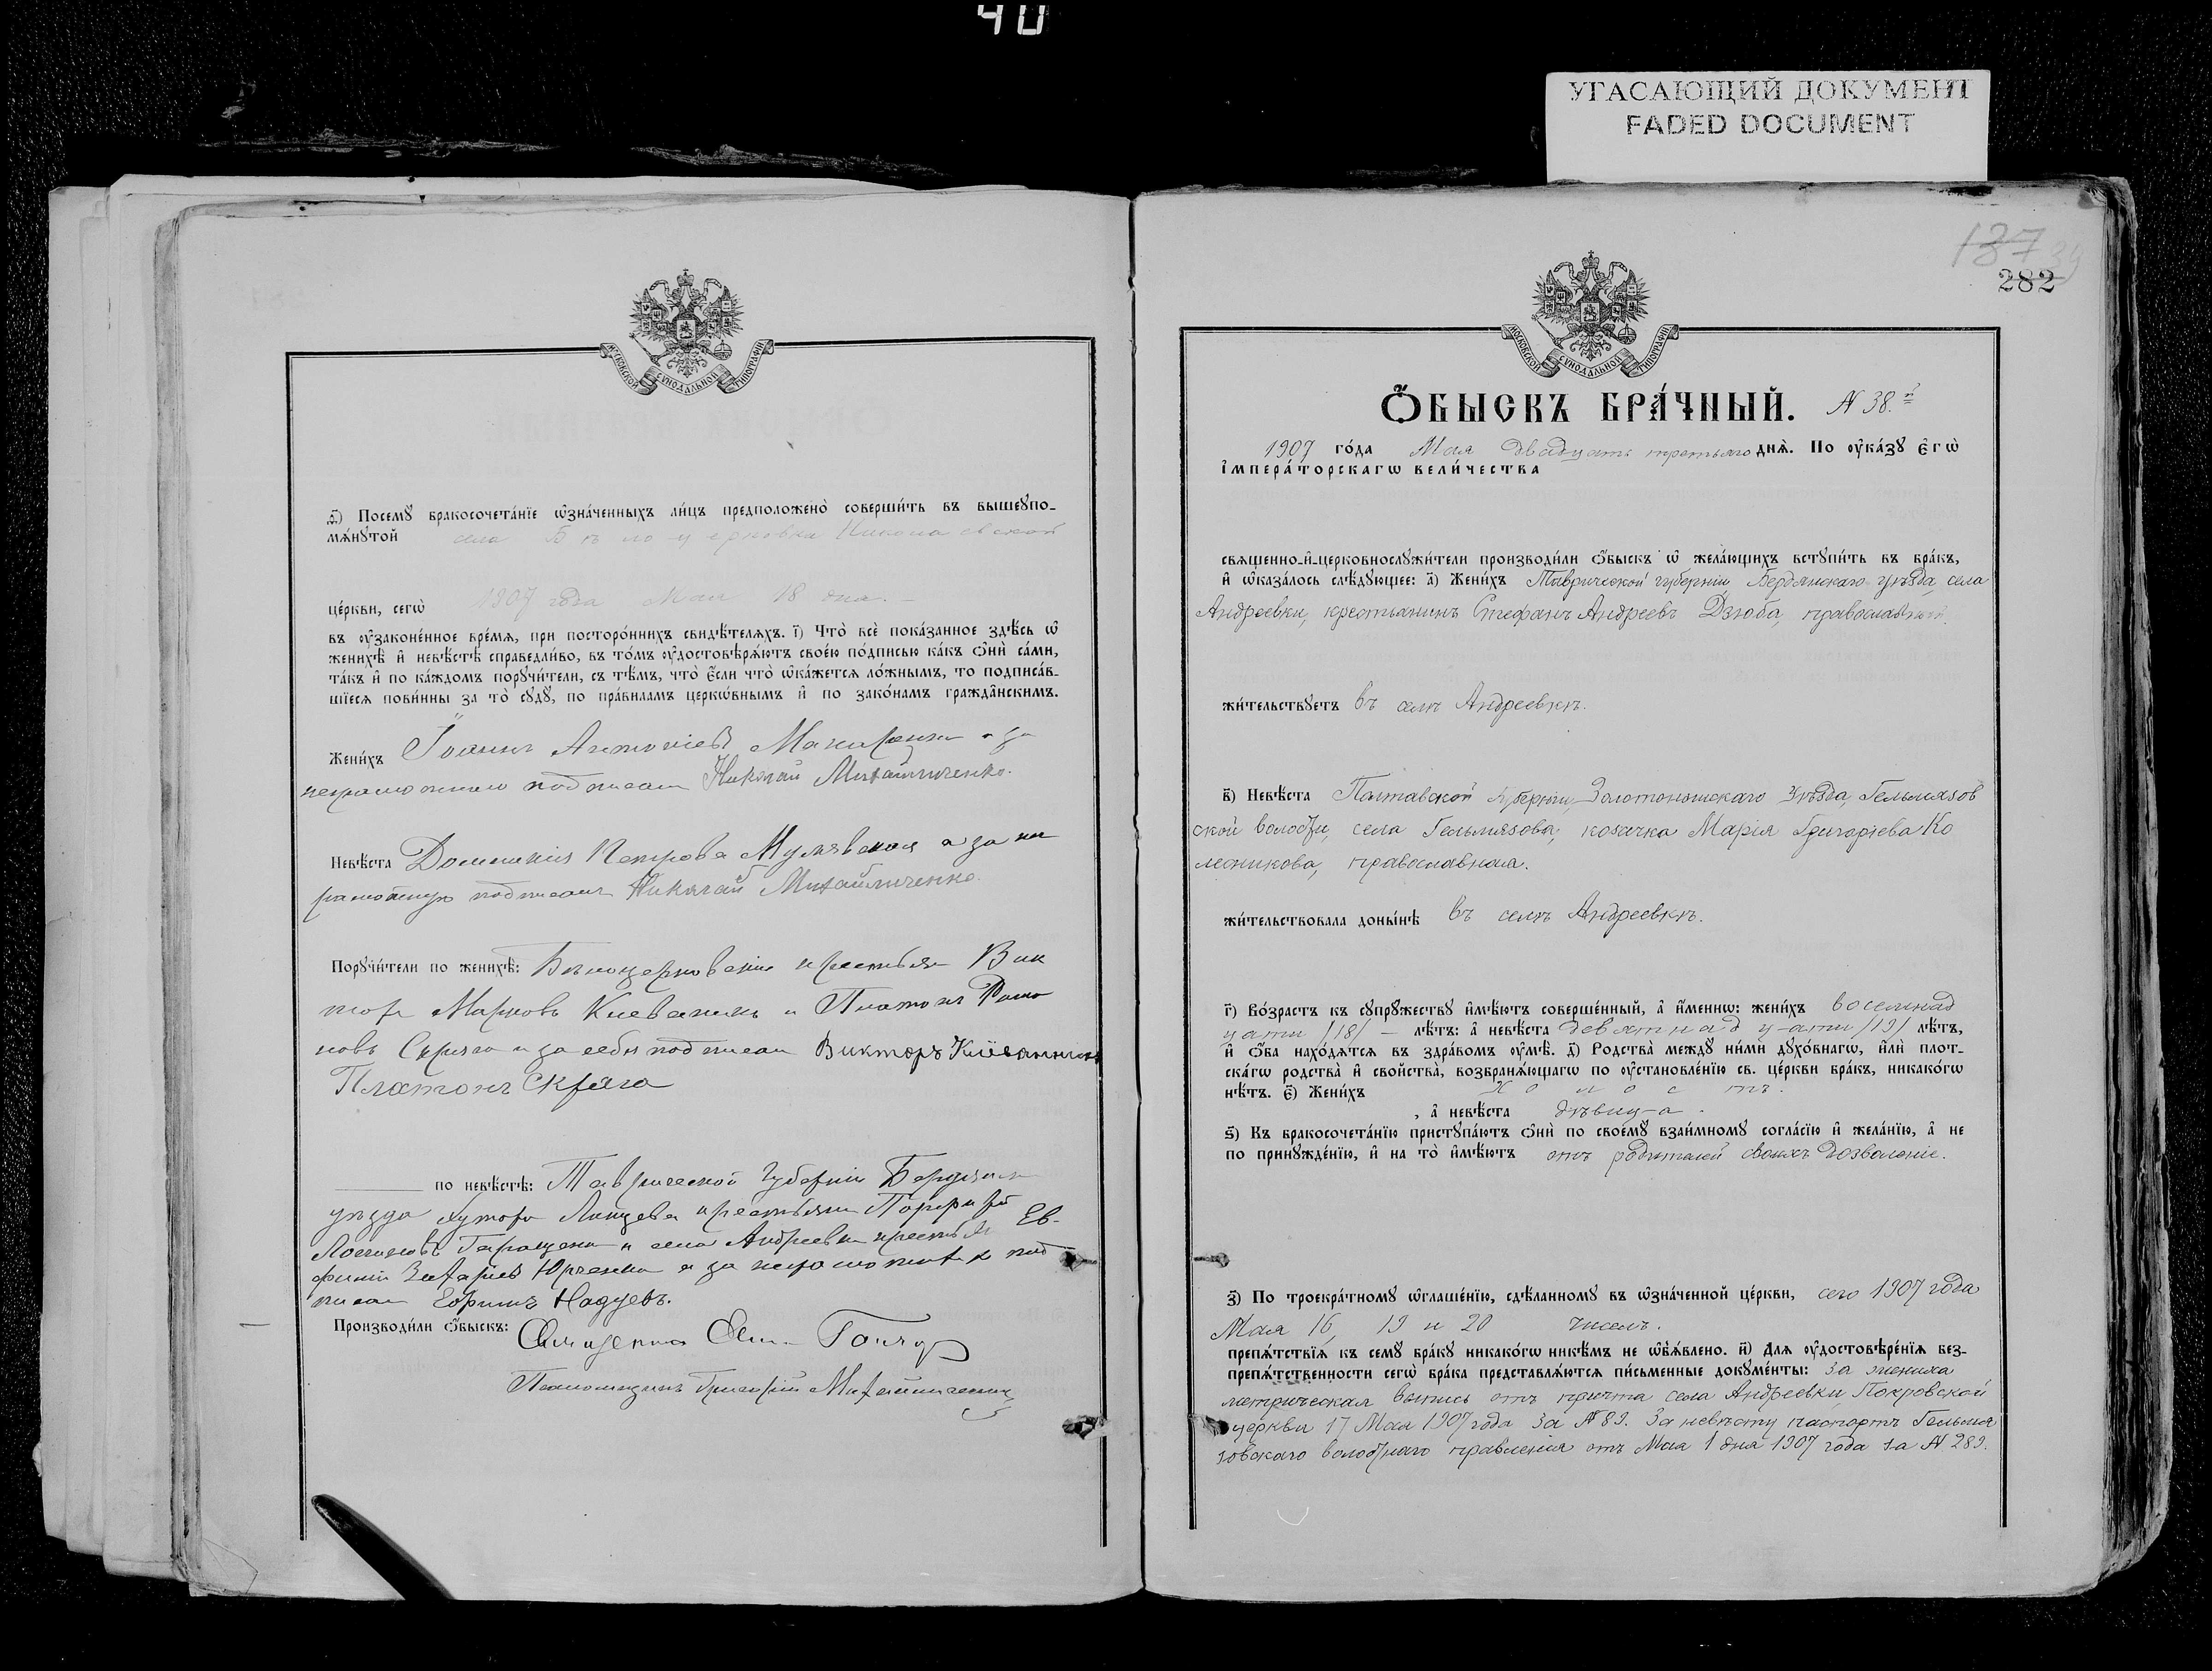 40
УГАСАЮЩИЙ ДОКУМЕНТ
FADED DOCUMENT
МОСКОВСКОЙ СѴНОДАЛЬНОЙ ТИПОГРАФІИ
ѳ҃) Посемꙋ бракосочета́нїе ѡ҆зна́ченныхъ ли́цъ предположено̀ соверши́ть въ вышеꙋпо-
мѧ́нꙋтой села Бѣлоцерковка Николаевской
це́ркви, сегѡ̀ 1907 года Мая 18 дня.
въ ᲂу҆законе́нное вре́мѧ, при посторо́ннихъ свидѣ́телѧхъ. і҃) Что̀ всѐ пока́занное здѣ́сь ѡ҆
женихѣ̀ и҆ невѣ́стѣ справедли́во, въ то́мъ ᲂу҆достовѣрѧ́ютъ свое́ю по́дписью ка́къ ѻ҆нѝ са́ми,
та́къ и҆ по ка́ждомъ порꙋчи́тели, съ тѣ́мъ, что̀ є҆́сли что̀ ѡ҆ка́жетсѧ ло́жнымъ, то подписа́в-
шїесѧ пови́нны за то̀ сꙋдꙋ̀, по пра́виламъ церкѡ́внымъ и҆ по зако́намъ гражда̑нскимъ.
Жени́хъ Іоаннъ Антоніевъ Макаренко а за
неграмотнаго подписалъ Николай Михайличенко.
Невѣ́ста Домникія Петрова а за не
грамотную подписалъ Николай Михайличенко.
Порꙋчи́тели по женихѣ̀: Бѣлоцерковскіе крестьяне Вик
торъ Марковъ Кіеванинъ и Платонъ
новъ Скряга и за себя подписали Викторъ Кіеванинъ
Платонъ Скряга
по невѣ́стѣ: Таврической губерніи Бердянск
уѣзда хутора крестьянинъ Порфирій
Геращенко и села Андреевки крестьян Ев-
фимій Захаріев Юрченко а за неграмотныхъ под
писалъ
Производи́ли ѻ҆́быскъ: Священникъ Гончар
Псаломщикъ Григорій Михайличенко
137 39
282
МОСКОВСКОЙ СѴНОДАЛЬНОЙ ТИПОГРАФІИ
Ѻ҆́БЫСКЪ БРА́ЧНЫЙ. № 38.й
1907 го́да Мая двадцать третьяго днѧ̀. По ᲂу҆ка́зꙋ є҆гѡ̀
і҆мпера́торскагѡ вели́чества
свѧщенно-и҆-церковнослꙋжи́тели производи́ли ѻ҆́быскъ ѡ҆ жела́ющихъ встꙋпи́ть въ бра́къ,
и҆ ѡ҆каза́лось слѣ́дꙋющее: а҃) Жени́хъ Таврической губерніи, Бердянскаго уѣзда, села
Андреевки, крестьянинъ Стефанъ Андреевъ Дзюба, православный.
жи́тельствꙋетъ въ селѣ Андреевкѣ.
в҃) Невѣ́ста Полтавской губерніи, Золотоношскаго уѣзда, Гельмязов
ской волости, села Гельмязова, козачка Марія Григорьева Ко
лесникова, православная.
жи́тельствовала доны́нѣ въ селѣ Андреевкѣ.
г҃) Во́зрастъ къ сꙋпрꙋ́жествꙋ и҆мѣ́ютъ соверше́нный, а҆ и҆́меннѡ: жени́хъ восемнад
цати /18/ — лѣ́тъ: а҆ невѣ́ста девятнадцати /19/ лѣ́тъ,
и҆ ѻ҆́ба нахо́дѧтсѧ въ здра́вомъ ᲂу҆мѣ̀. д҃) Родства̀ междꙋ̀ ни́ми дꙋхо́внагѡ, и҆лѝ плот-
ска́гѡ родства̀ и҆ сво́йства, возбранѧ́ющагѡ по ᲂу҆становле́нїю св. це́ркви бра́къ, никако́гѡ
нѣ́тъ. є҃) Жени́хъ холостъ.
, а҆ невѣ́ста дѣвица.
ѕ҃) Къ бракосочета́нїю пристꙋпа́ютъ ѻ҆нѝ по своемꙋ̀ взаи́мномꙋ согла́сїю и҆ жела́нїю, а҆ не
по принꙋжде́нїю, и҆ на то̀ и҆мѣ́ютъ отъ родителей своихъ дозволеніе.
з҃) По троекра́тномꙋ ѡ҆глаше́нїю, сдѣ́ланномꙋ въ ѡ҆зна́ченной це́ркви, сего 1907 года
Мая 16, 19 и 20 чиселъ.
препѧ́тствїѧ къ семꙋ̀ бра́кꙋ никако́гѡ никѣ́мъ не ѡ҆б̾ѧ́влено. и҃) Для ᲂу҆достовѣре́нїѧ без-
препѧ́тственности сегѡ̀ бра́ка представлѧ́ютсѧ пи́сьменные докꙋме́нты: за жениха
метрическая выпись отъ причта села Андреевки, Покровской
церкви 17 Мая 1907 года за № 89. За невѣсту паспортъ Гельмя
зовскаго волостнаго правленія отъ Мая 1 дня 1907 года за № 289.